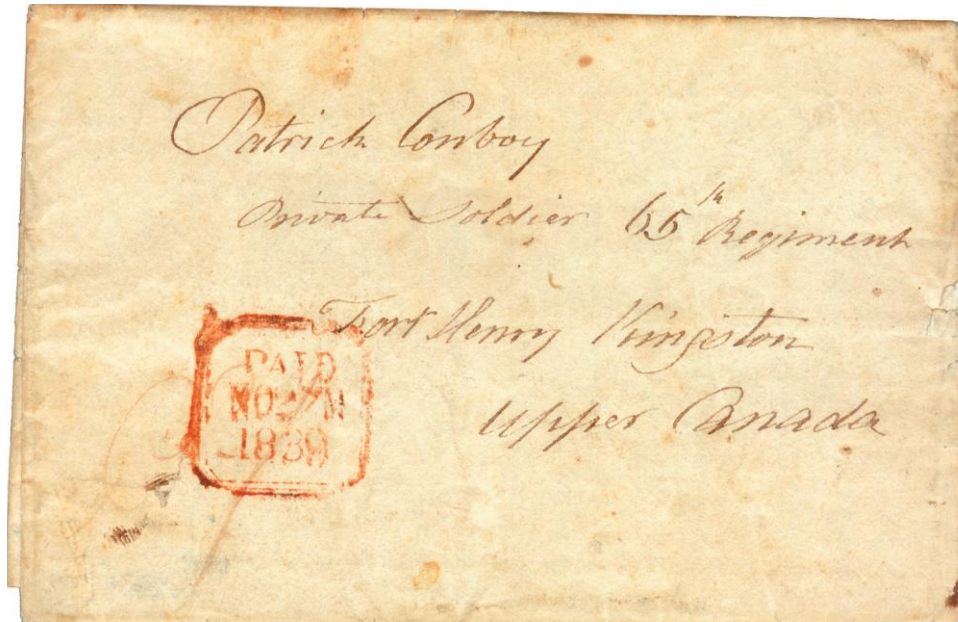 Patrick Conboy
Private Soldier 65th Regiment
Fort Henry Kingston
Upper Canada
PAID
1839